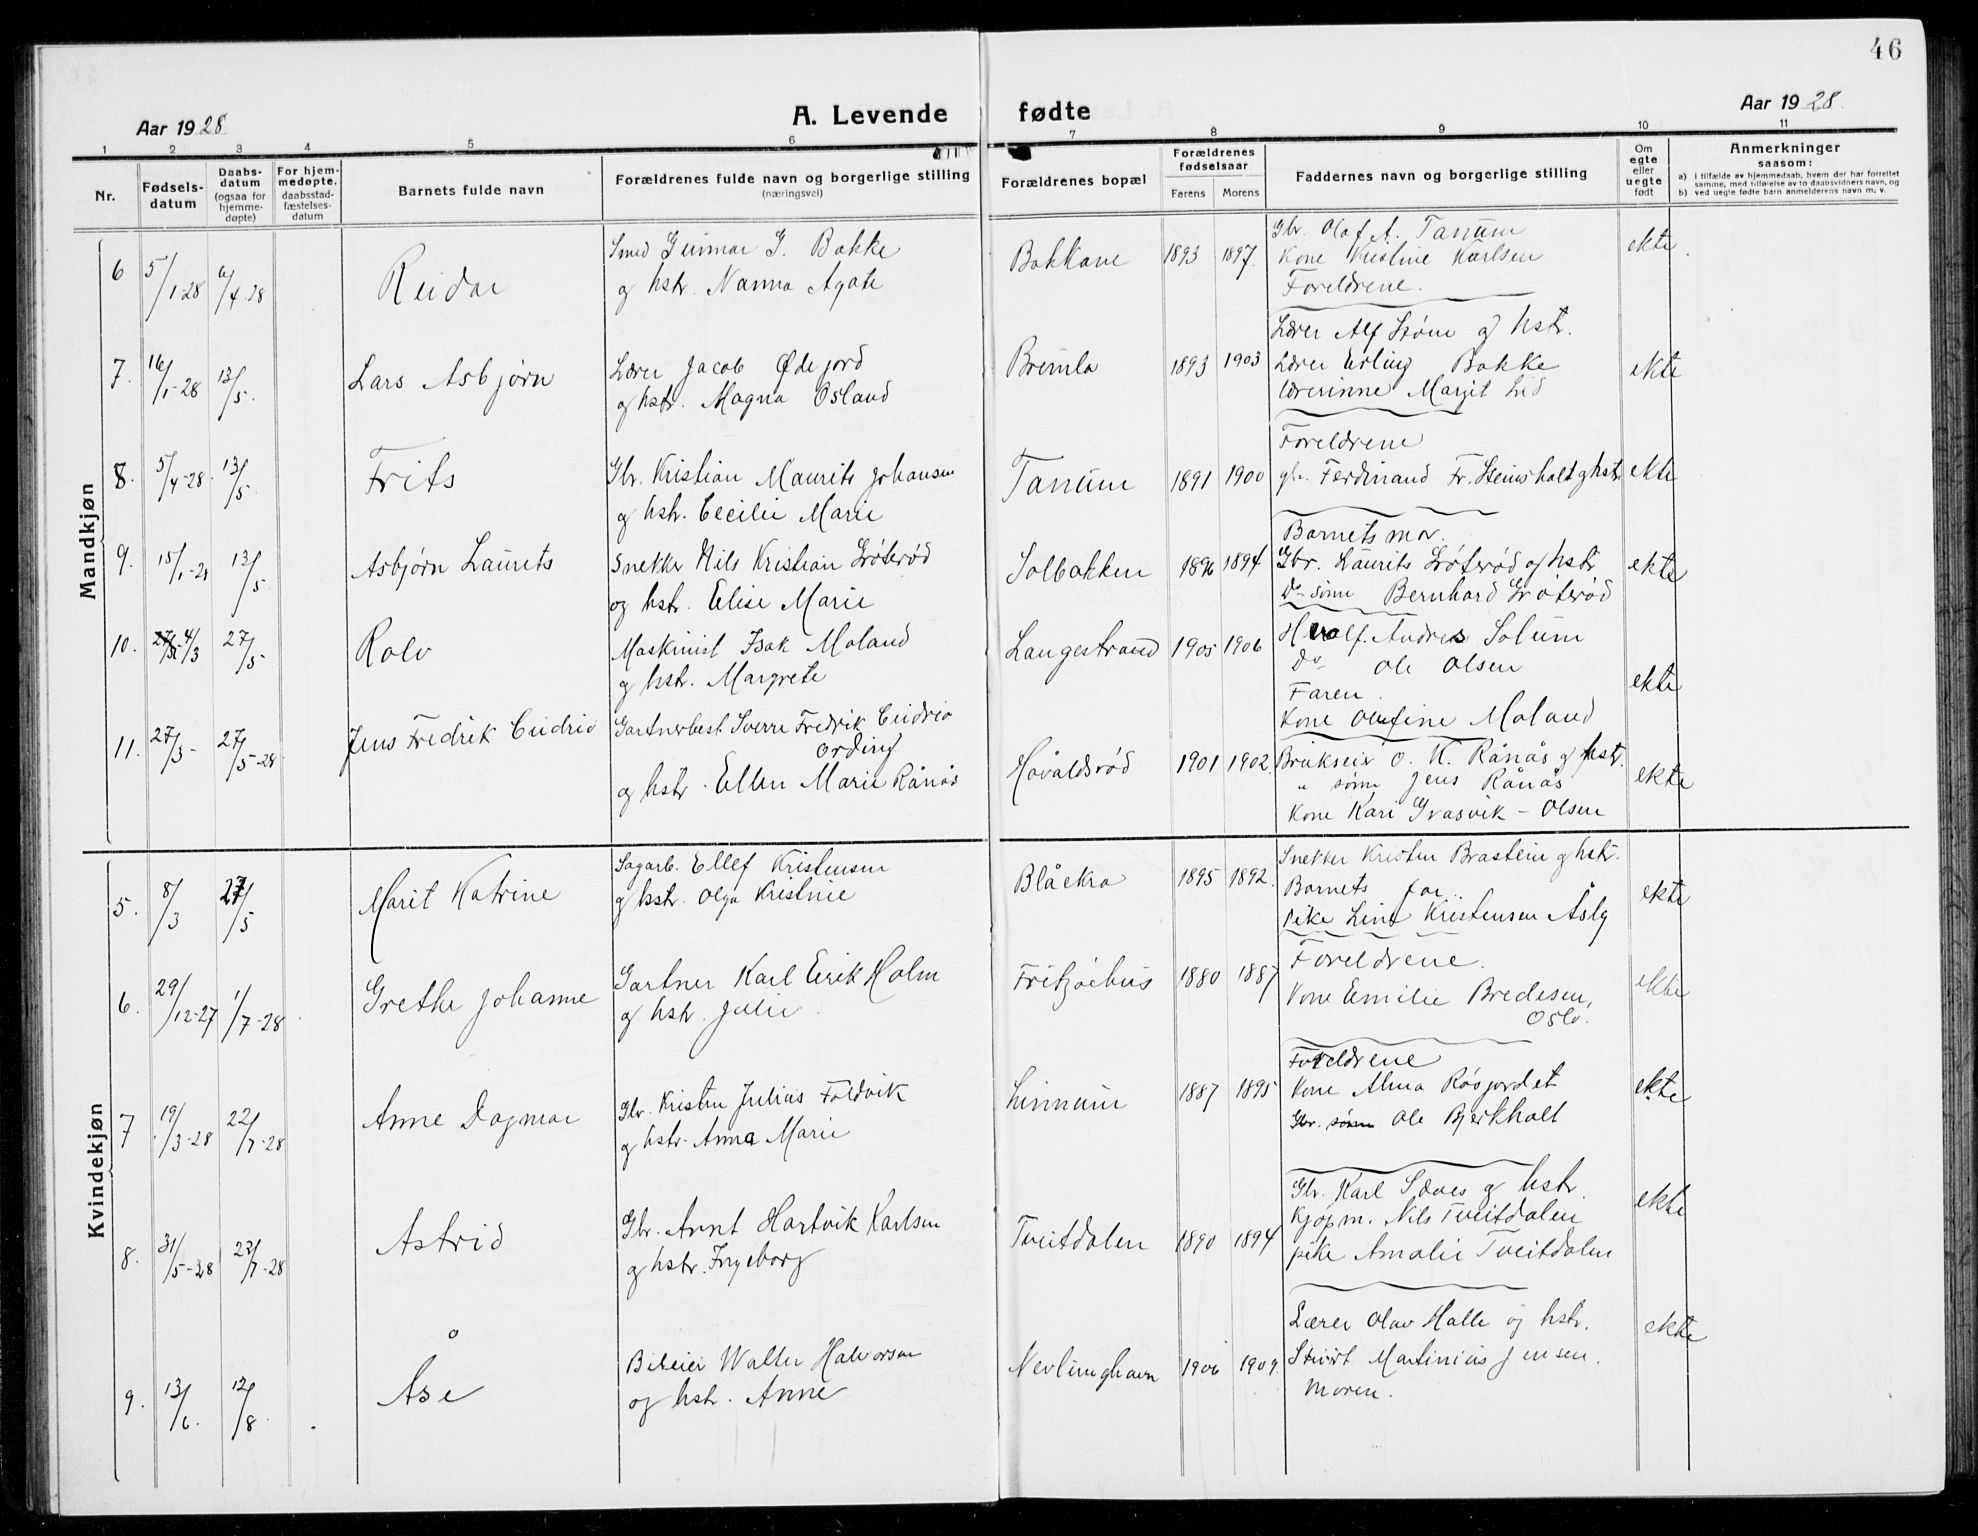 46
Aar 1928
A. Levende fødte
Aar 1928.
1 2 3 4 5 6 7 8 9 10 11
Nr.
Fødsels-
datum
Daabs-
datum
(ogsaa for
hjemme-
døpte)
For hjem-
medøpte.
daabsstad-
fæstelses-
datum
Barnets fulde navn
Forældrenes fulde navn og borgerlige stilling
(næringsvei)
Forældrenes bopæl
Forældrenes
fødselsaar
Farens Morens
Faddernes navn og borgerlige stilling
Om
egte
eller
uegte
født
Anmerkninger
saasom:
a) i tilfælde av hjemmedaab, hvem der har forrettet
samme, med tilføielse av to daabsvidners navn, og
b) ved uegte fødte barn anmelderens navn m. v.
Mandkjøn
6 5/1-28 6/4-28
Reidar
Smed Gunnar G. Bakke
og hstr. Nanna Agate
Bakkane 1893 1897.
Gbr. Olaf A. Tanum
Kone Kristine Karlsen
Foreldrene.
ekte.
7. 16/1-28 13/5.
Lars Asbjørn
Lærer Jacob Ødejord
og hstr. Magna Osland
Bremla 1893 1903
Lærer Alf Strøm og hstr.
Lærer Erling Bakke
Lærerinne Margit Lid
ekte
8. 5/4-28. 13/5.
Frits
Gbr. Kristian Maurits Johansen
og hstr. Cecilie Marie
Tanum 1891 1900
Foreldrene
gbr. Ferdinand Fr. Steinsholt og hstr.
ekte
9. 15/1-28 13/5
Asbjørn Laurits
Snekker Nils Kristian Trøterød
og hstr. Elise Marie
Solbakken 1896 1894
Barnets mor.
Gbr. Laurits Trøterød og hstr
Do sønn Bernhard Trøterød
ekte
10. 4/3 27/5
Rolv
Maskinist Isak Moland
og hstr. Margrete
Langestrand 1905 1906
Andres Solum
Do Ole Olsen
Faren.
Kone Olefine Moland
ekte
11. 27/3- 27/5-28
Jens Fredrik Cudrio
Gartnerbest Sverre Fredrik Cudrio
Ording
og hstr. Ellen Marie Rånås
Håvaldsrød 1901 1902.
Brukseier O. K. Rånås og hstr.
" sønn Jens Rånås
Kone Kari Græsvik - Olsen
ekte
Kvindekjøn
5. 8/3 27/5
Marit Katrine
Sagarb. Ellef Kristensen
og hstr. Olga Kristine
Blåekra 1895 1892.
Snekker Kristen Brastein og hstr.
Barnets far..
Pike Lina Kristensen Åsly
ekte
6. 29/12-27 1/7-28
Grethe Johanne
Gartner Karl Eirik Holm
og hstr. Julie.
Fritzøehus 1880 1887
Foreldrene.
Kone Emilie Bredesen,
Oslo.
ekte
7 19/3-28 22/7-28
Anne Dagmar
Gbr. Kristen Julius Foldvik
og hstr. Anna Marie
Linnum 1887 1895
Foreldrene
Kone Alma Røsjordet
Gbr. sønn Ole Bjerkholt
ekte
8. 31/5-28 22/7-28
Astrid
Gbr. Arnt Hartvik Karlsen
og hstr. Ingeborg
Tveitdalen 1890 1894
Gbr. Karl Sæves og hstr.
Kjøpm. Nils Tveitdalen
pike Amalie Tveitdalen
ekte
9. 13/6. 12/8.
Åse
Bileier Walter Halvorsen
og hstr. Anne
Nevlunghavn 1906 1909.
Lærer Olav Halle og hstr.
Martinius Jensen.
moren.
ekte